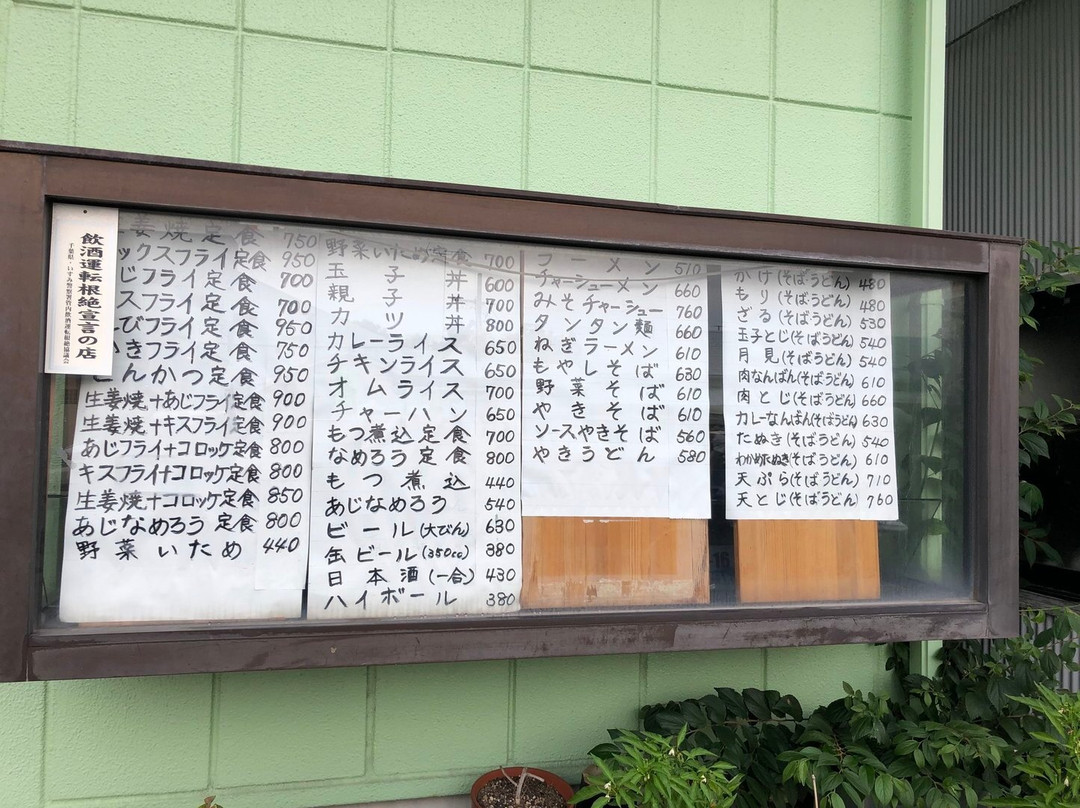 飲酒運転根絶宣言の店
千葉県・いすみ警察署管内飲酒運転根絶協議会
姜焼定食 750
ックスフライ定食 950
じフライ定食 700
スフライ定食 700
びフライ定食 950
きフライ定食 750
とんかつ定食 950
生姜焼+あじフライ定食 900
生姜焼+キスフライ定食 900
あじフライ+コロッケ定食 800
キスフライ+コロッケ定食 800
生姜焼+コロッケ定食 850
あじなめろう定食 800
野菜いため 440
野菜いため定食 700
玉子丼 600
親子丼 700
カツ丼 800
カレーライス 650
チキンライス 650
オムライス 700
チャーハン 650
もつ煮込定食 700
なめろう定食 800
もつ煮込 440
あじなめろう 540
ビール(大びん) 630
缶ビール(350cc) 380
日本酒(一合) 430
ハイボール 380
ラーメン 510
チャーシューメン 660
みそチャーシュー 760
タンタン麺 660
ねぎラーメン 610
もやしそば 630
野菜そば 610
やきそば 610
ソースやきそば 560
やきうどん 580
かけ(そばうどん) 480
もり(そばうどん) 480
ざる(そばうどん) 530
玉子とじ(そばうどん) 540
月見(そばうどん) 540
肉なんばん(そばうどん) 610
肉とじ(そばうどん) 660
カレーなんばん(そばうどん) 630
たぬき(そばうどん) 540
わかめたぬき(そばうどん) 610
天ぷら(そばうどん) 710
天とじ(そばうどん) 760